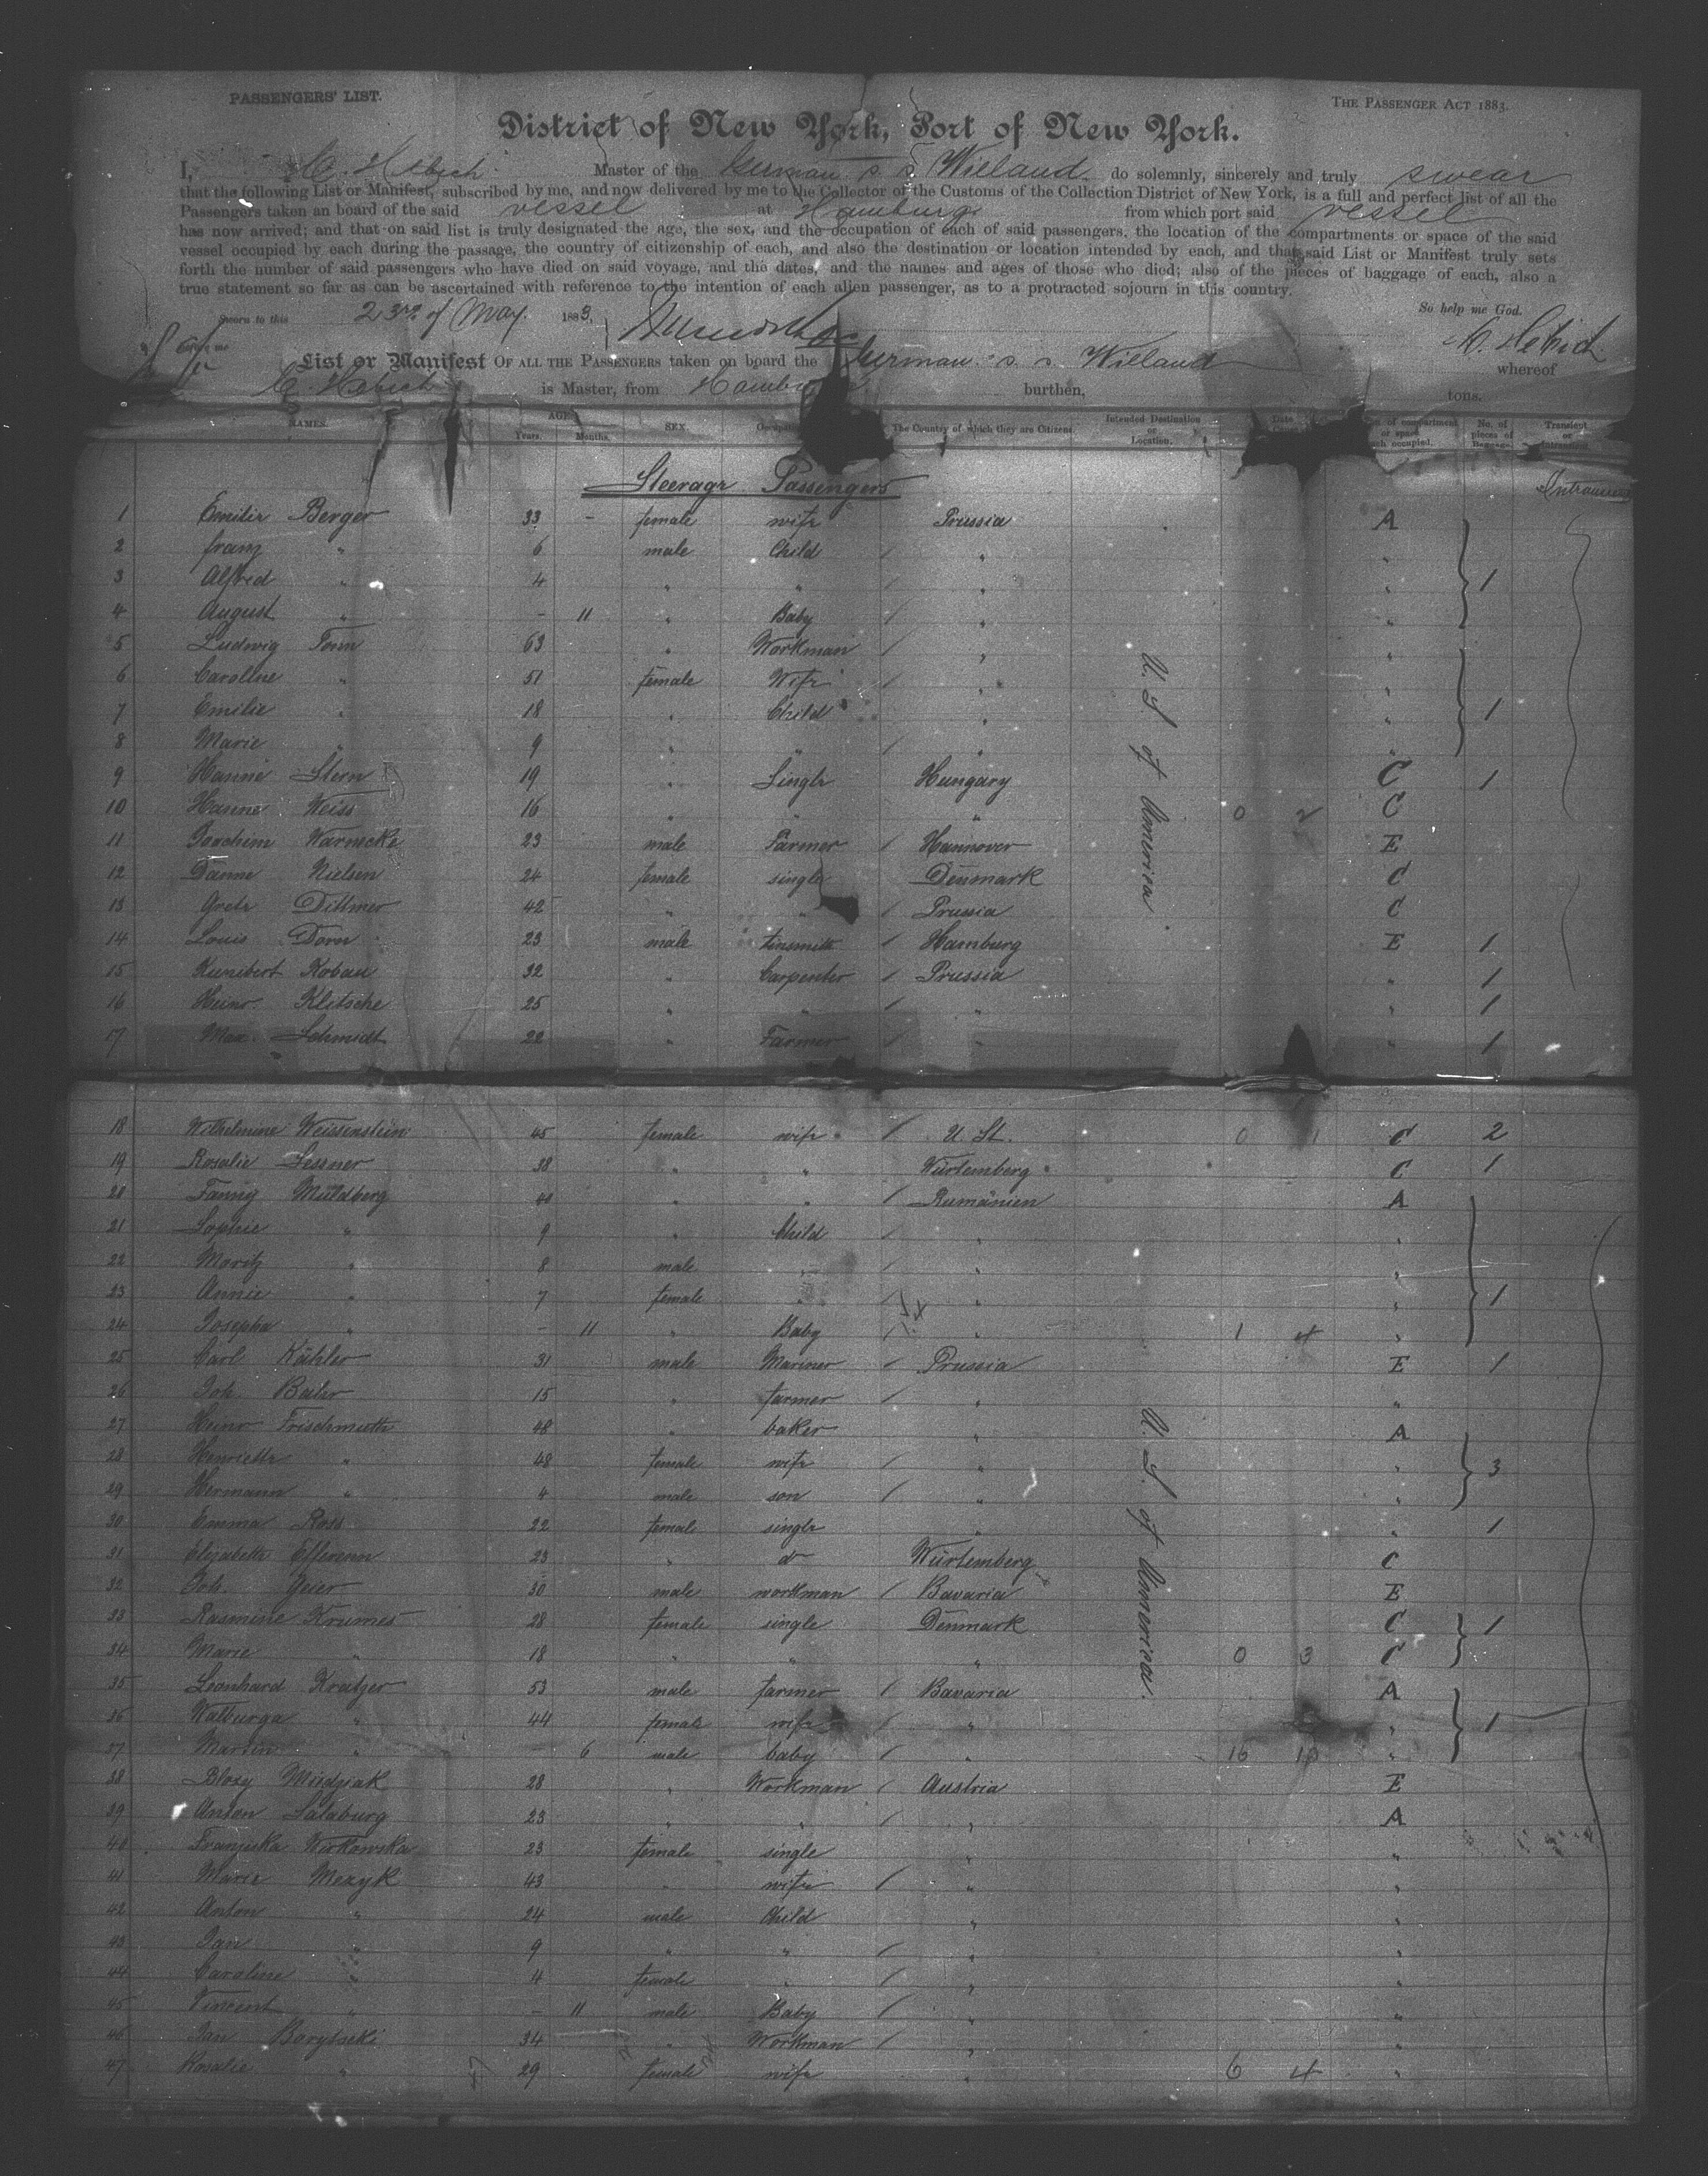 PASSENGERS' LIST.
THE PASSENGER ACT 1883.
District of New York, Port of New York.
I, Master of the German s. s. Wieland do solemnly, sincerely and truly swear
that the following List or Manifest, subscribed by me, and now delivered by me to the Collector of the Customs of the Collection District of New York, is a full and perfect list of all the
Passengers taken an board of the said vessel at Hamburg from which port said vessel
has now arrived; and that on said list is truly designated the age, the sex, and the occupation of each of said passengers, the location of the compartments or space of the said
vessel occupied by each during the passage, the country of citizenship of each, and also the destination or location intended by each, and that said List or Manifest truly sets
forth the number of said passengers who have died on said voyage, and the dates, and the names and ages of those who died; also of the pieces of baggage of each, also a
true statement so far as can be ascertained with reference to the intention of each alien passenger, as to a protracted sojourn in this country.
So help me God.
Sworn to this 23rd of May 1883,
before me
List or Manifest OF ALL THE PASSENGERS taken on board the German s. s. Wieland whereof
is Master, from Hamburg burthen, tons.
NAMES. AGE. Years. Months. SEX. The Country of which they are Citizens. Intended Destination or Location. Date of compartment or space each occupied. No. of pieces of Baggage. Transient or
Steerage Passengers
1 Emilie Berger 33 - female wife Prussia A
2 Franz " 6 male Child " "
3 Alfred " 4 " " " " 1
4 August " - 11 " Baby " "
5 Ludwig Tonn 63 " Workman " "
6 Caroline " 51 female Wife " "
7 Emilie " 18 " Child " " 1
8 Marie " 9 " " " "
9 Hanne Stern 19 " Single Hungary C 1
10 Hanne Weiss 16 " " " 0 2 C
11 Joachim Warncke 23 male Farmer Hannover E
12 Nielsen 24 female single Denmark C
13 Grete Dittmer 42 " " Prussia C
14 Louis Dorn 23 male tinsmith Hamburg E 1
15 Kunibert Kobau 32 " Carpenter Prussia " 1
16 Heinr. Klitsche 25 " " " " 1
17 Max Schmidt 22 " Farmer " " 1
U. S. of America
18 Wilhelmine Weissenstein 45 female wife U. St. 0 1 C 2
19 Rosalie Lessner 38 " " Würtemberg C 1
20 Fanny Müldberg 40 " " Rumänien A
21 Sophie " 9 " Child " "
22 Moritz " 8 male " " "
23 Annie " 7 female " " " 1
24 Josepha " - 11 " Baby " 1 4 "
25 Carl Kähler 31 male Mariner Prussia E 1
26 Joh. 15 " farmer " "
27 Heinr. Frischmuth 48 " baker " A
28 Henriette " 48 female wife " " 3
29 Hermann " 4 male son " "
30 Emma Ross 22 female single " " 1
31 Elisabeth 23 " do Würtemberg C
32 Joh. Geier 30 male workman Bavaria E
33 Rasmine Krumes 28 female single Denmark C 1
34 Marie " 18 " " " 0 3 C
35 Leonhard Kratzer 53 male farmer Bavaria A
36 Walburga " 44 female wife " " 1
37 Martin " - 6 male baby " 16 "
38 28 " Workman Austria E
39 Anton Salzburg 23 " " " A
40 Franziska Wirkowska 23 female single " "
41 Marie Mezyk 43 " wife " "
42 Anton " 24 male Child " "
43 Jan " 9 " " " "
44 Caroline " 4 female " " "
45 Vincent " - 11 male Baby " "
46 Jan 34 " Workman " "
47 Rosalie " 29 female wife " 6 4 "
U. S. of America.